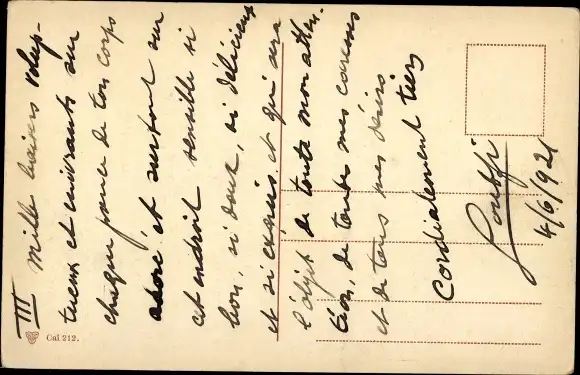 III
Mille baisers volup-
tueux et enivrants sur
chaque pouce de ton corps
adoré et surtout sur
cet endroit sensible si
bon, si doux, si délicieux
et si exquis et qui sera
l'objet de toute mon atten-
tion, de toutes mes caresses
et de tous mes désirs
Cordialement tien
Loutfi
4/6/921
Cal 212.